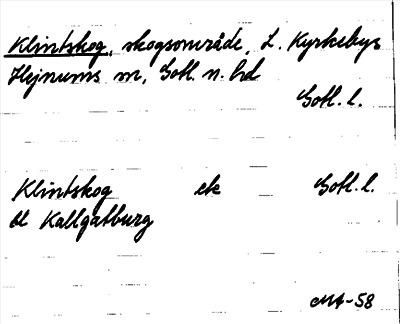 Klintskog, skogsområde, L. Kyrkebys
Hejnums sn, Gotl. n. hd
Gotl. l.
Klintskog ek Gotl. l.
bl Kallgatburg
MA-58